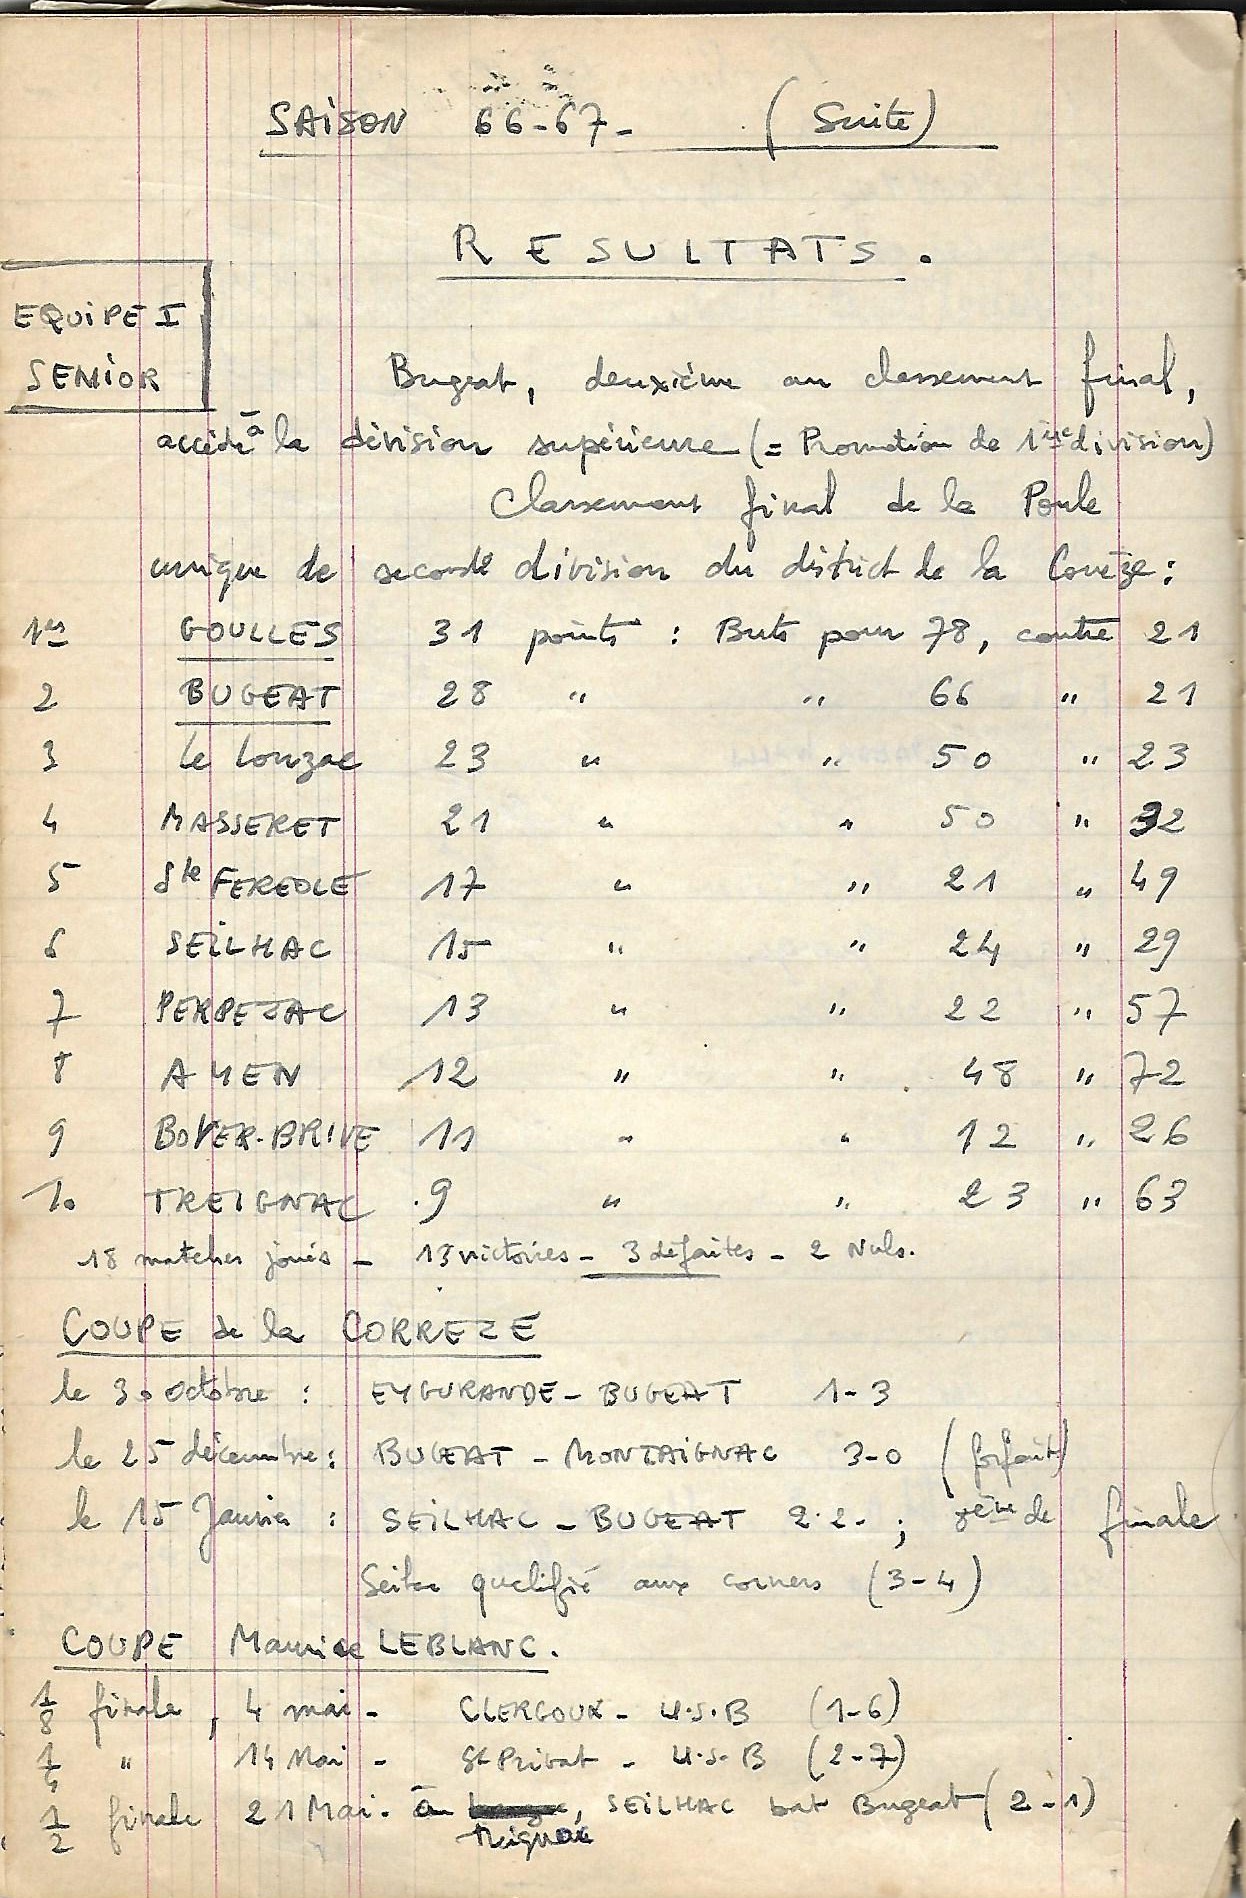 SAISON 66-67- (Suite)
RESULTATS.
EQUIPE I
SENIOR
Bugeat, deuxième au classement final,
accède à la division supérieure (= Promotion de 1ère division)
Classement final de la Poule
unique de seconde division du district de la Corrèze :
1er GOULLES 31 points : Buts pour 78, contre 21
2 BUGEAT 28 " " 66 " 21
3 Le Lonzac 23 " " 50 " 23
4 MASSERET 21 " " 50 " 32
5 Ste FEREOLE 17 " " 21 " 49
6 SEILHAC 15 " " 24 " 29
7 PERPEZAC 13 " " 22 " 57
8 AYEN 12 " " 48 " 72
9 BOVER-BRIVE 11 " " 12 " 26
10 TREIGNAC 9 " " 23 " 63
18 matches joués - 13 victoires - 3 défaites - 2 Nuls.
COUPE de la CORREZE
le 30 octobre : EYGURANDE - BUGEAT 1-3
le 25 décembre : BUGEAT - MONTAIGNAC 3-0 (forfait)
le 15 Janvier : SEILHAC - BUGEAT 2.2. ; de finale
qualifié aux corners (3-4)
COUPE Maurice LEBLANC.
1/8 finale, 4 mai - CLERGOUX - U.S.B (1-6)
1/4 " 14 Mai - St Privat - U.S.B (2-7)
1/2 finale 21 Mai. à SEILHAC bat Bugeat (2-1)
Treignac